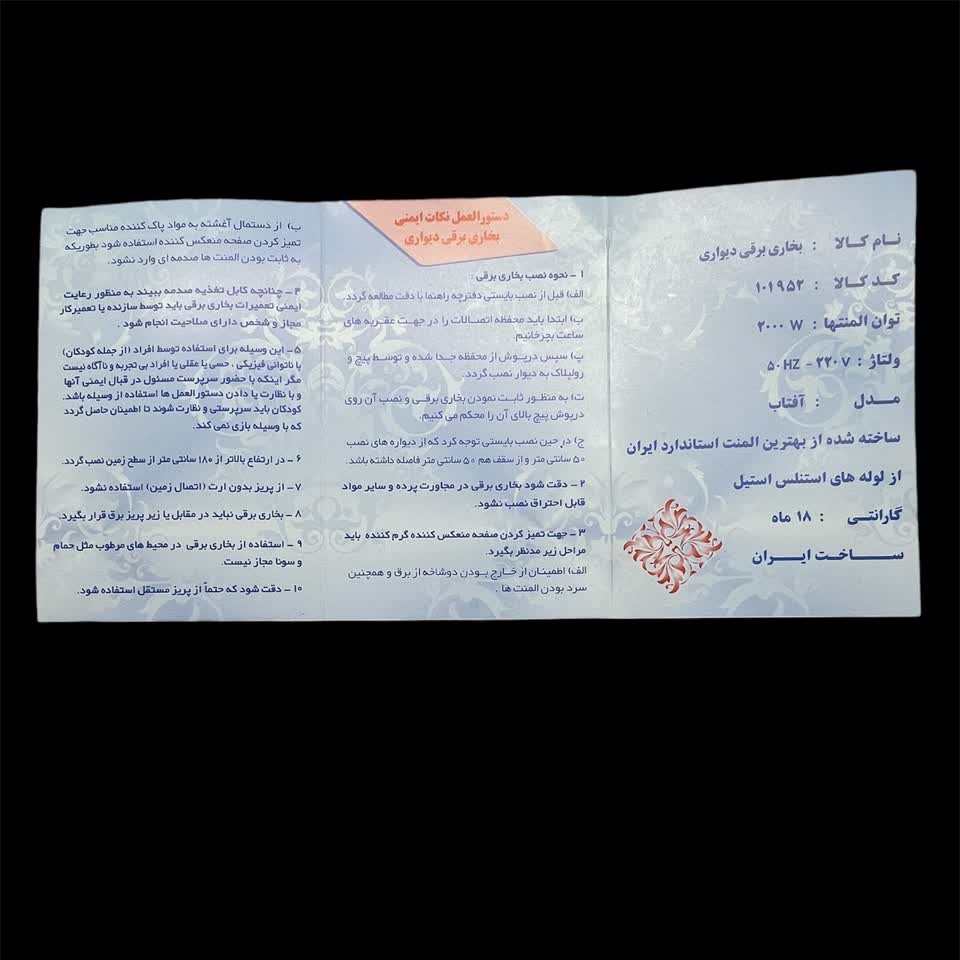 نام کالا : بخاری برقی دیواری
کد کالا : ۱۰۱۹۵۲
توان المنتها : ۲۰۰۰ W
ولتاژ : ۲۲۰۷ - ۵۰HZ
مدل : آفتاب
ساخته شده از بهترین المنت استاندارد ایران
از لوله های استنلس استیل
گارانتی : ۱۸ ماه
ساخت ایران
دستورالعمل نکات ایمنی
بخاری برقی دیواری
۱ - نحوه نصب بخاری برقی :
الف) قبل از نصب بایستی دفترچه راهنما با دقت مطالعه گردد.
ب) ابتدا باید محفظه اتصالات را در جهت عقربه های
ساعت بچرخانیم.
پ) سپس درپوش از محفظه جدا شده و توسط پیچ و
رولپلاک به دیوار نصب گردد.
ت) به منظور ثابت نمودن بخاری برقی و نصب آن روی
درپوش پیچ بالای آن را محکم می کنیم.
ج) در حین نصب بایستی توجه کرد که از دیواره های نصب
۵۰ سانتی متر و از سقف هم ۵۰ سانتی متر فاصله داشته باشد.
۲ - دقت شود بخاری برقی در مجاورت پرده و سایر مواد
قابل احتراق نصب نشود.
۳ - جهت تمیز کردن صفحه منعکس کننده گرم کننده باید
مراحل زیر مدنظر بگیرد.
الف) اطمینان از خارج بودن دوشاخه از برق و همچنین
سرد بودن المنت ها .
ب) از دستمال آغشته به مواد پاک کننده مناسب جهت
تمیز کردن صفحه منعکس کننده استفاده شود بطوریکه
به ثابت بودن المنت ها صدمه ای وارد نشود.
۴ - چنانچه کابل تغذیه صدمه ببیند به منظور رعایت
ایمنی تعمیرات بخاری برقی باید توسط سازنده یا تعمیرکار
مجاز و شخص دارای صلاحیت انجام شود .
۵ - این وسیله برای استفاده توسط افراد (از جمله کودکان)
با ناتوانی فیزیکی ، حسی یا عقلی یا افراد بی تجربه و ناآگاه نیست
مگر اینکه با حضور سرپرست مسئول در قبال ایمنی آنها
و با نظارت یا دادن دستورالعمل ها استفاده از وسیله باشد.
کودکان باید سرپرستی و نظارت شوند تا اطمینان حاصل گردد
که با وسیله بازی نمی کند.
۶ - در ارتفاع بالاتر از ۱۸۰ سانتی متر از سطح زمین نصب گردد.
۷ - از پریز بدون ارت (اتصال زمین) استفاده نشود.
۸ - بخاری برقی نباید در مقابل یا زیر پریز برق قرار بگیرد.
۹ - استفاده از بخاری برقی در محیط های مرطوب مثل حمام
و سونا مجاز نیست.
۱۰ - دقت شود که حتماً از پریز مستقل استفاده شود.